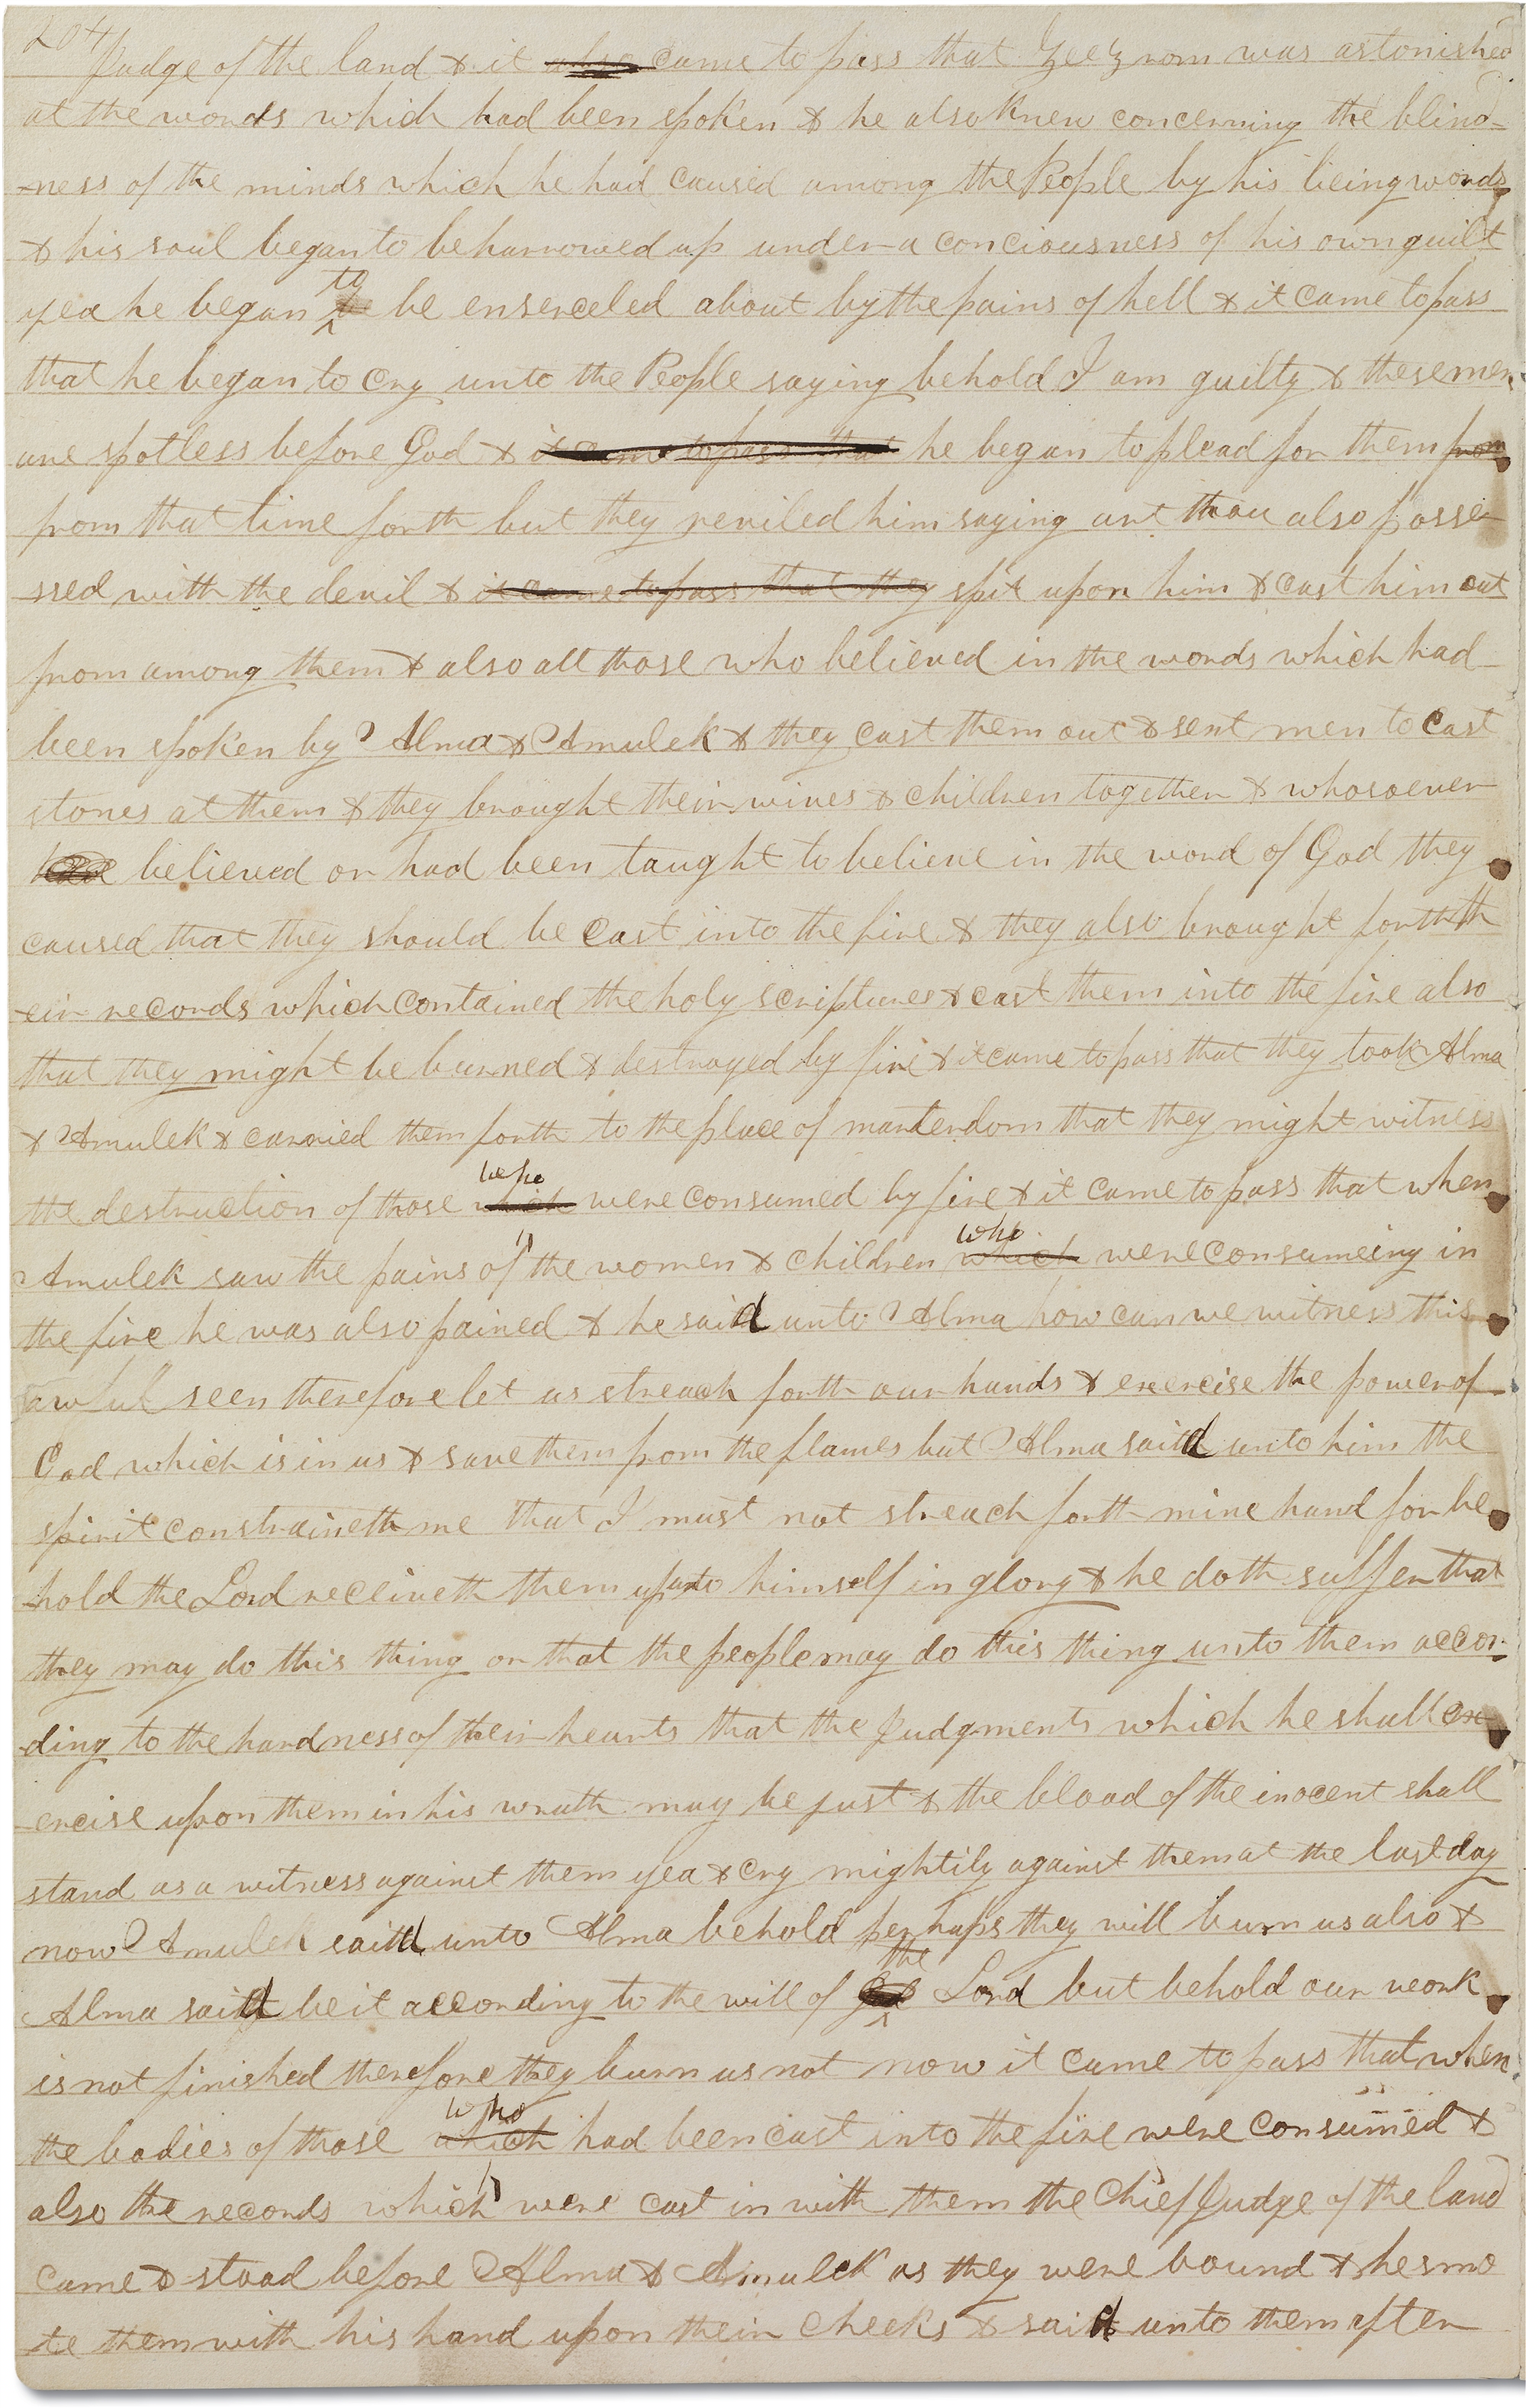 204
Judge of the land & it also came to pass that Zeezrom was astonished
at the words which had been spoken & he also knew concerning the blind-
-ness of the minds which he had caused among the People by his lieing words
& his soul began to be harrowed up under a conciousness of his own guilt
to
yea he began be enserceled about by the pains of hell & it came to pass
that he began to cry unto the People saying behold I am guilty & these men
are spotless before God & it came to pass that he began to plead for them from
from that time forth but they reviled him saying art thou also posse-
-ssed with the devil & it came to pass that they spit upon him & cast him out
from among them & also all those who believed in the words which had
been spoken by Alma & Amulek & they cast them out & sent men to cast
stones at them & they brought their wives & children together & whosoever
believed or had been taught to believe in the word of God they
caused that they should be cast into the fire & they also brought forth th
-eir records which contained the holy scriptures & cast them into the fire also
that they might be burned & destroyed by fire & it came to pass that they took Alma
& Amulek & carried them forth to the place of marterdom that they might witness
who
the destruction of those which were consumed by fire & it came to pass that when
who
Amulek saw the pains of the women & children which were consumeing in
the fire he was also pained & he said unto Alma how can we witness this
awful seen therefore let us streach forth our hands & exercise the power of
God which is in us & save them from the flames but Alma said unto him the
spirit constraineth me that I must not streach forth mine hand for be
-hold the Lord receiveth them up unto himself in glory & he doth suffer that
they may do this thing or that the people may do this thing unto them accor-
ding to the hardness of their hearts that the Judgments which he shall ex-
-ercise upon them in his wrath may be just & the blood of the inocent shall
stand as a witness against them yea & cry mightily against them at the last day
now Amulek said unto Alma behold perhaps they will burn us also &
the
Alma said be it according to the will of Lord but behold our work
is not finished therefore they burn us not now it came to pass that when
who
the bodies of those which had been cast into the fire were consumed &
also the records which were cast in with them the Chief Judge of the land
came & stood before Alma & Amulek as they were bound & he smo
te them with his hand upon their cheeks & said unto them after